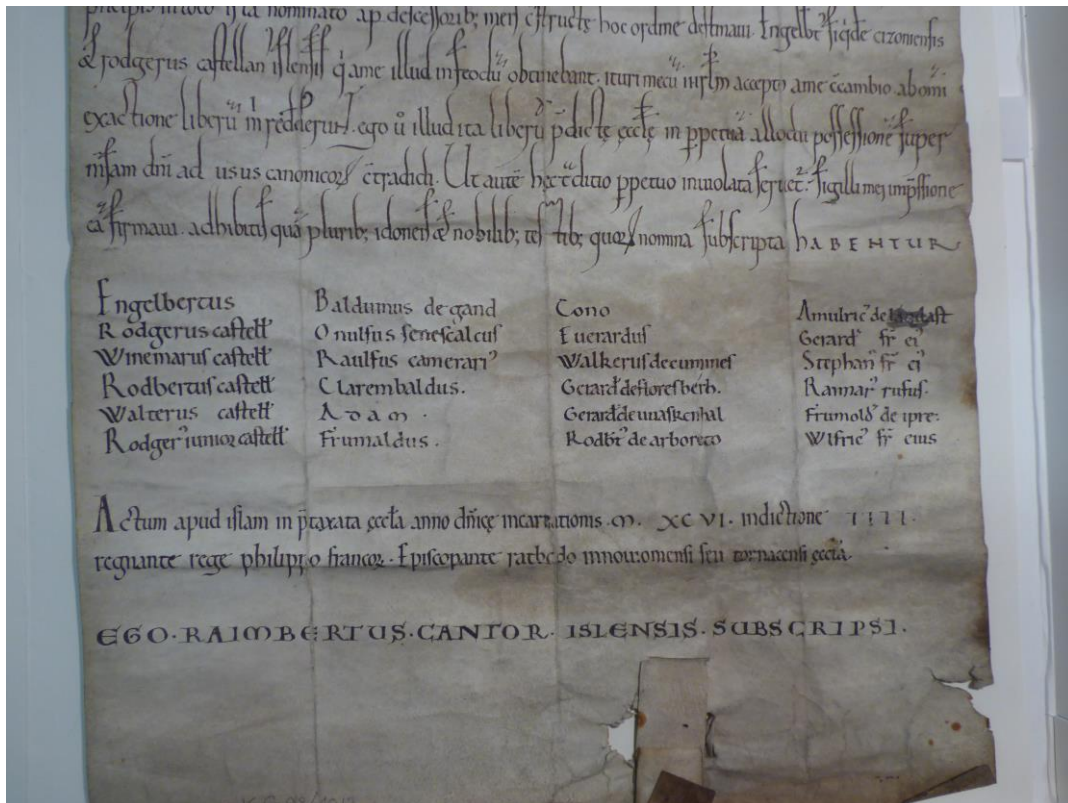 nominato ap. descessorib; meis c̄structę hoc ordine destinaui. Engelbt̄ siqde cizoniensis
& rodgerus castellan islensis q̇ ame illud infeodū obtinebant. ituri mecū ihrslm accepto ame c̄cambio abomi
exactione liberū m reddider̄. ego ů illud ita liberū p̄dictę ęccłę in ppetuā allodii possessionē super
m̄sam dn̄i ad usus canonicoꝝ c̄tradidi. Ut autē hęc t̄ditio ppetuo inuiolata seruet᷑. sigilli mei imp̄ssione
eā firmaui. adhibitis quā plurib; idoneis & nobilib; testib; quoꝝ nomina subscripta HABENTUR
Engelbertus
Rodgerus castell̄
Winemarus castell̄
Rodbertus castell̄
Walterus castell̄
Rodgerꝰ iunior castell̄
Balduinus de gand
Onulfus senescalcus
Raulfus camerariꝰ
Clarembaldus.
Adam.
Frumaldus.
Cono
Euerardus
Walkerus decumines
Gerard̄ defloresberh.
Gerard̄ deuuaskenhal
Rodbt̄ dearboreto
Amulricꝰ de
Gerardꝰ fr̄ eiꝰ
Stephanꝰ fr̄ eiꝰ
Rannarꝰ rufus.
Frumoldꝰ de ipre:
Wifricꝰ fr̄ eius
Actum apud islam in p̄taxata ęccła anno dn̄icę incarnationis. M. XCVI. indictione IIII.
regnante rege philippo francoꝝ. Episcopante ratbodo innouiomensi seu tornacensi ęccła.
EGO. RAIMBERTUS. CANTOR. ISLENSIS. SUBSCRIPSI.